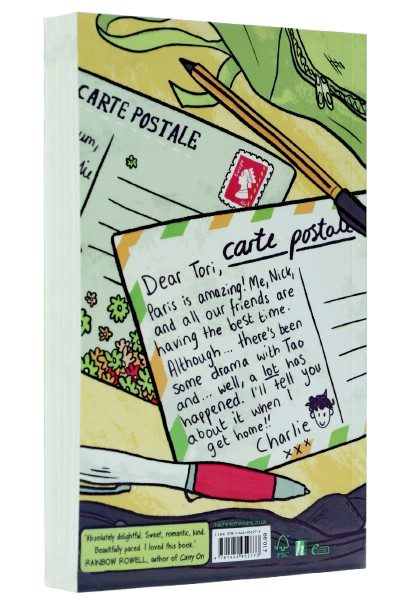 CARTE POSTALE
um,
carte postale
Dear Tori,
Paris is amazing! Me, Nick,
and all our friends are
having the best time.
Although... there's been
some drama with Tao
and... well, a lot has
happened. I'll tell you
about it when I
get home!!
Charlie
xxx
"Absolutely delightful. Sweet, romantic, kind.
Beautifully paced. I loved this book."
RAINBOW ROWELL, author of Carry On
FSC